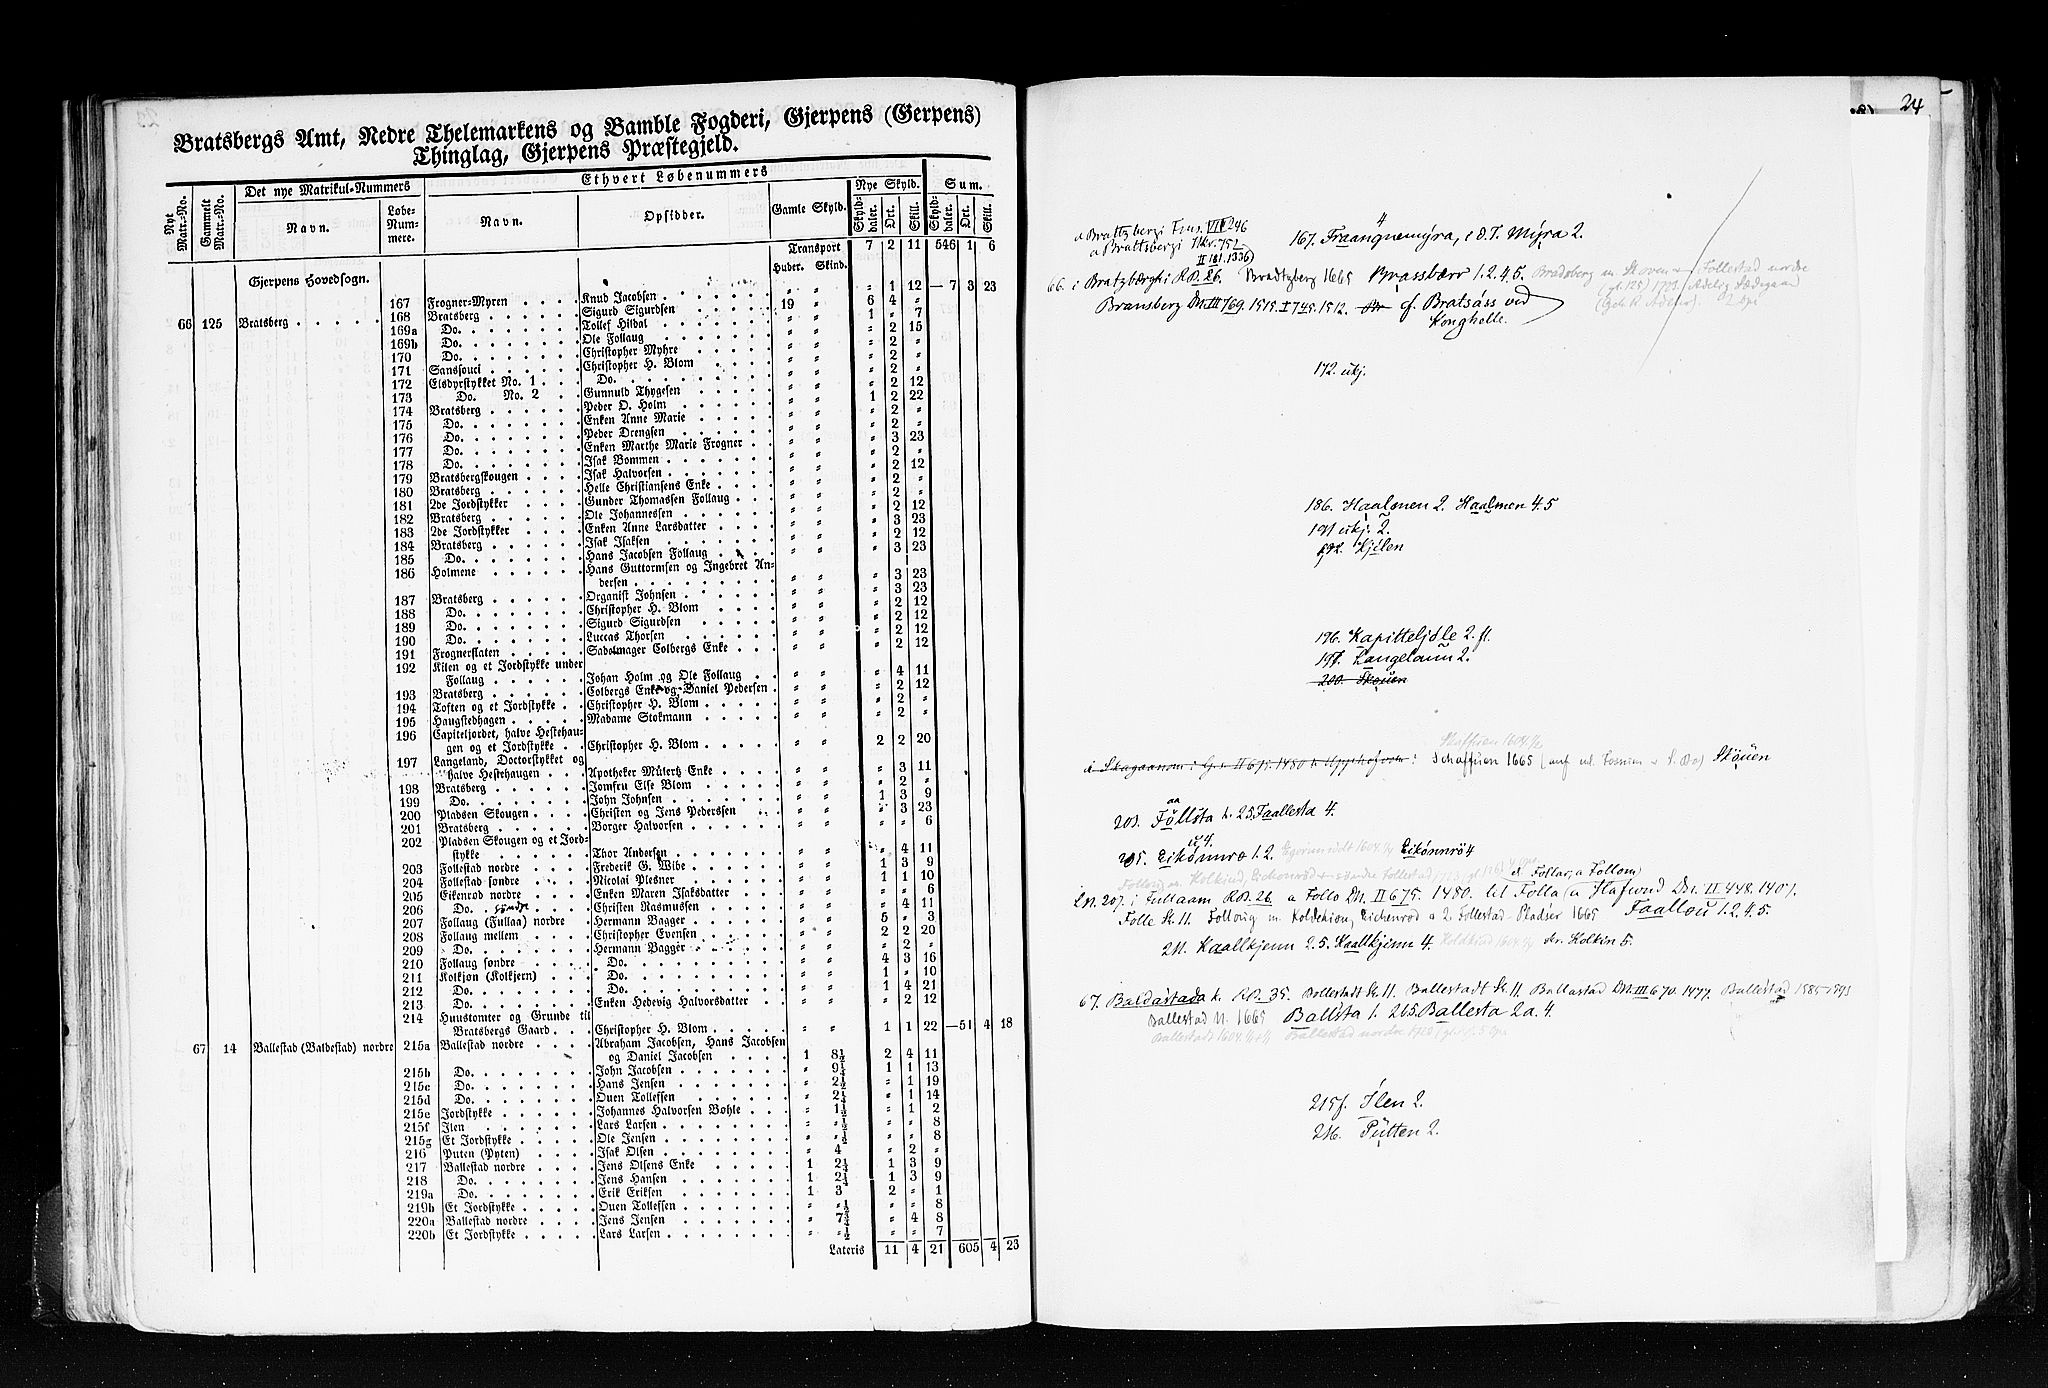 Bratsbergs Amt, Nedre Thelemarkens og Bamble Fogderi, Gjerpens (Gerpens)
Thinglag, Gjerpens Præstegjeld.
Nyt Matr.-No. Gammelt Matr.-No. Det nye Matrikul-Nummers Ethvert Løbenummers
Navn. Løbe-Nummere. Navn. Opsidder. Gamle Skyld. Nye Skyld. Sum.
Skylddaler. Ort. Skill. Skylddaler. Ort. Skill.
Transport 7 2 11 546 1 6
Huder. Skind.
Gjerpens Hovedsogn.
167 Frogner-Myren Knud Jacobsen " " " 1 12 — 7 3 23
66 125 Bratsberg 168 Bratsberg Sigurd Sigurdsen 19 " 6 4 "
169a Do. Tollef Hildal " " 1 " 7
169b Do. Ole Follaug " " " 2 15
170 Do. Christopher Myhre " " " 2 "
171 Sanssouci Christopher H. Blom " " " 2 "
172 Elsdyrstykket No. 1 Do. " " " 2 "
173 Do. No. 2 Gunnuld Thygesen " " " 2 12
174 Bratsberg Peder O. Holm " " 1 2 22
175 Do. Enken Anne Marie " " " 2 "
176 Do. Peder Drengsen " " " 2 "
177 Do. Enken Marthe Marie Frogner " " " 3 23
178 Do. Isak Bommen " " " 2 "
179 Bratsbergskougen Isak Halvorsen " " " 2 12
180 Bratsberg Helle Christiansens Enke " " " 2 "
181 2de Jordstykker Gunder Thomassen Follaug " " " 2 "
182 Bratsberg Ole Johannessen " " " 2 12
183 2de Jordstykker Enken Anne Larsdatter " " " 3 23
184 Bratsberg Isak Isaksen " " " 2 12
185 Do. Hans Jacobsen Follaug " " " 3 23
186 Holmene Hans Guttormsen og Ingebret An-
dersen " " " 3 23
187 Bratsberg Organist Johnsen " " " 3 23
188 Do. Christopher H. Blom " " " 2 12
189 Do. Sigurd Sigurdsen " " " 2 12
190 Do. Luccas Thorsen " " " 2 12
191 Frognerslaten Sadelmager Colbergs Enke " " " 2 12
192 Kilen og et Jordstykke under
Follaug Johan Holm og Ole Follaug " " " 4 11
193 Bratsberg Colbergs Enke og Daniel Pedersen " " " 2 12
194 Toften og et Jordstykke Christopher H. Blom " " " 2 "
195 Haugstedhagen Madame Stokmann " " " 2 "
196 Capiteljordet, halve Hestehau-
gen og et Jordstykke Christopher H. Blom " " 2 2 20
197 Langeland, Doctorstykket og
halve Hestehaugen Apotheker Mülertz Enke " " " 3 11
198 Bratsberg Jomfru Else Blom " " " 2 "
199 Do. John Johnsen " " 1 3 9
200 Pladsen Skougen Christen og Jens Pederssen " " " 3 23
201 Bratsberg Borger Halvorsen " " " " 6
202 Pladsen Skougen og et Jord-
stykke Thor Andersen " " " 4 11
203 Follestad nordre Frederik G. Wibe " " 1 3 9
204 Follestad søndre Nicolai Plesner " " 1 1 10
205 Eikenrød nordre Enken Maren Isaksdatter " " " " 6
206 Do. søndre Christen Rasmussen " " " 4 11
207 Follaug (Fullaa) nordre Hermann Bagger " " 5 " 3
208 Follaug mellem Christopher Evensen " " 2 2 20
209 Do. Hermann Bagger " " " 2 "
210 Follaug søndre Do. " " 4 3 16
211 Kolkjøn (Kolkjern) Do. " " 1 " 10
212 Do. Do. " " 1 4 21
213 Do. Enken Hedevig Halvorsdatter " " " 2 12
214 Huustomter og Grunde til
Bratsbergs Gaard Christopher H. Blom " " 1 1 22 — 51 4 18
67 14 Ballestad (Baldestad) nordre 215a Ballestad nordre Abraham Jacobsen, Hans Jacobsen
og Daniel Jacobsen 1 8½ 2 4 11
215b Do. John Jacobsen " 9¼ 1 1 13
215c Do. Hans Jensen " 2½ " 1 19
215d Do. Ouen Tollefsen " 2¼ " 1 14
215e Jordstykke Johannes Halvorsen Bøhle " 1½ " 1 2
215f Ilen Lars Larsen " ½ " " 8
215g Et Jordstykke Ole Jensen " ½ " " 8
216 Puten (Pyten) Isak Olsen " 4 " 2 "
217 Ballestad nordre Jens Olsens Enke 1 2¼ 1 3 9
218 Do. Jens Hansen 1 2¼ 1 3 9
219a Do. Erik Eriksen 1 3 2 " 1
219b Et Jordstykke Ouen Tollefsen " ½ " " 8
220a Ballestad nordre Jens Jensen " 7½ " 4 8
220b Et Jordstykke Lars Larsen " ½ " " 7
Lateris 11 4 21 605 4 23
24
a Brattzbergi Fms. VIII 246
167. Fraangnemýra, i D. T. Mýra 2.
a Brattsbergi Hkr. 751
II 181. 1336)
66. i Bratzbærghi R.B. 26. Bradtzberg 1665 Brassbærr 1. 2. 4. 5. Bradsberg m. Skoven Follestad nordre
Bransberg Dn. III 769. 1515. I 745. 1512. cf. Bratsåss ved
Konghelle.
172. ukj.
186. Haalmen 2. Haalmen 4. 5
191 ukj. 2.
192. Kjilen
196. Kapitteljole 2. fl.
197. Langelann 2.
200. Skouen
Skaffuen 1604.
Schaffuen 1665 Skouen
203. Follsta k. 25. Faallesta 4.
205. Eikonnrø 1. 2. Eikonnrø 4
Ln. 207. i Fullaam R.B. 26. a Follo Dn. II 675. 1480. til Folla (a Hafund Dn. II 448. 1407.
Folle St. 11. Folloug m. Eichenrød a 2. Follestad-Pladser 1665 Faallou 1. 2. 4. 5.
211. Kaallkjenn 2. 5. Kaallkjinn 4. Kolkin 5.
67. Baldastada k. R.B. 35. Bollestadt St. 11. Ballestadt St. 11 Ballastad Dn. III 670. 1477. Ballestad 1585 1593
Ballestad N. 1665 Ballsta 1. 265 Ballesta 2a. 4.
Ballestad 1604. Ballestad nordre 1723
215f. Ilen 2.
216. Pütten 2.